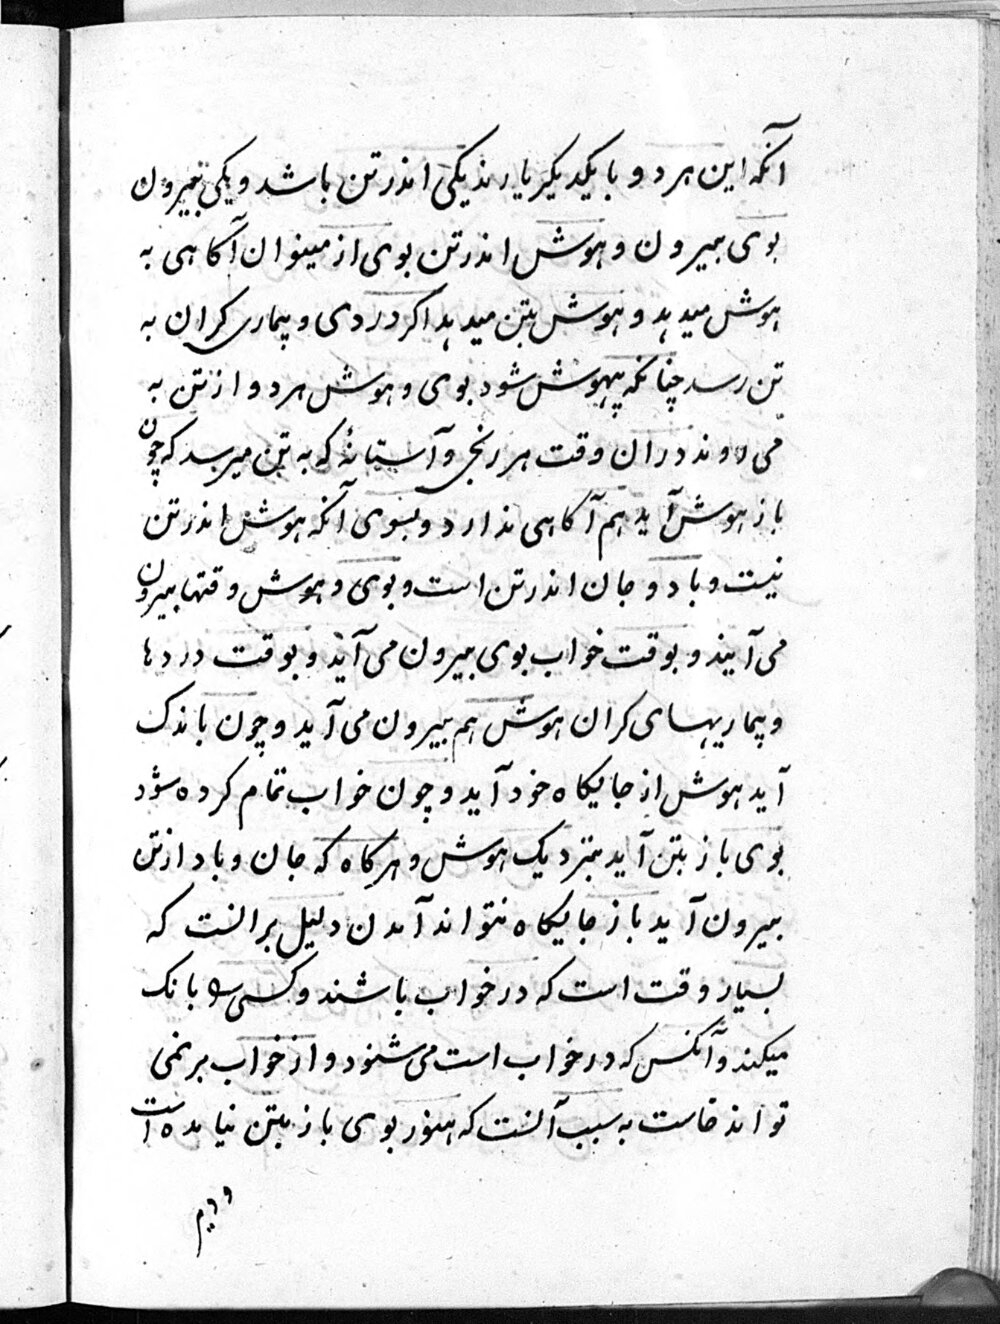 آنکه این هر دو با یکدیکر یارند یکی اندر تن باشد و یکی بیرون
بوی بیرون و هوش اندر تن بوی از مینوان آکاهی به
هوش میدهد و هوش بتن میدهد اکر دردی و بیماری کران به
تن رسد چنانکه بیهوش شود بوی و هوش هر دو از تن به
می روند در ان وقت هر رنجی و آستانهٔ که به تن میرسد که چون
باز هوش آید هم آکاهی ندارد و بسوی آنکه هوش اندر تن
نیست و باد و جان اندر تن است و بوی و هوش وقتها بیرون
می آیند و بوقت خواب بوی بیرون می آید و بوقت دردها
و بیماریهای کران هوش هم بیرون می آید و چون باندک
آید هوش از جایکاه خود آید و چون خواب تمام کرده شود
بوی باز بتن آید بنزدیک هوش و هرکاه که جان و باد از تن
بیرون آید باز جایکاه نتواند آمدن دلیل برانست که
بسیار وقت است که در خواب باشند و کسی را بانک
میکند و آنکس که در خواب است می شنود و از خواب برنمی
تواند خاست به سبب آنست که هنوز بوی باز بتن نیامده است